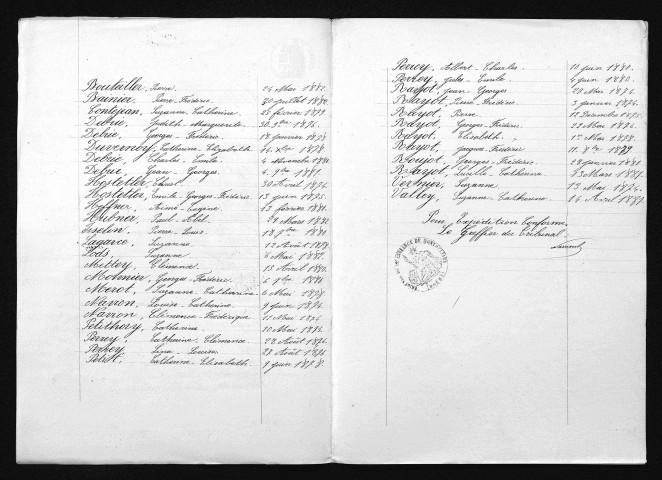 Boutiller, Pierre 24 Mai 1881.
Bainier, Pierre-Frédéric 30 Juillet 1880.
Contejean, Suzanne-Catherine 25 février 1879.
Debrie, Judith-Marguerite 30 9bre 1876.
Debrie, Georges-Frédéric 18 Janvier 1878.
Duvernoy, Catherine-Elizabeth Xbre 1878.
Debrie, Charles-Emile 4 Novembre 1880.
Debrie, Jean-Georges. 4 9bre 1881.
Hostetler, Christ. 30 Avril 1874.
Hostetler, Emile-Georges-Frédéric 13 Juin 1875.
Haffner, Aimé-Eugène 13 février 1881.
Hubner, Paul-Abel 28 Mars 1882.
Isselon, Pierre-Louis 18 9bre 1881.
Lagarce, Suzanne. 12 Août 1878.
Lods, Suzanne 8 Mai 1882.
Mettey, Clémence. 13 Avril 1880.
Monnier, Georges-Frédéric
Merot, Suzanne-Catherine 6 Mai 1878.
Marion, Louise-Catherine 9 Juin 1874.
Marion, Clémence-Frédérique 11 Mai 1874.
Petithory, Catherine 10 Mai 1876.
Perrey, Catherine Clémence. 28 Août 1876.
Perrey, Louise. 29 Août 1876.
Petit, Catherine-Elisabeth. 7 Juin 1878.
Perrey, Albert-Charles. 10 Juin 1880.
Perrey, Jules-Emile. 4 Juin 1880.
Rayot, Jean-Georges 28 Mai 1874.
Rayot, René-Frédéric 3 Janvier 1876.
Rayot, Pierre 12 Décembre 1875.
Rayot, Georges-Frédéric 22 Mai 1876.
Rayot, Elisabeth. 1er Mai 1878.
Rayot, Jacques-Frédéric 11 9bre 1879
Boujot, Georges-Frédéric 28 Janvier 1881.
Rayot, Lucille-Catherine 3 Mars 1874.
Vernier, Suzanne 13 Mai 1876.
Valley, Suzanne-Catherine. 14 Avril 1877.
Pour Expédition Conforme,
Le Greffier du Tribunal.